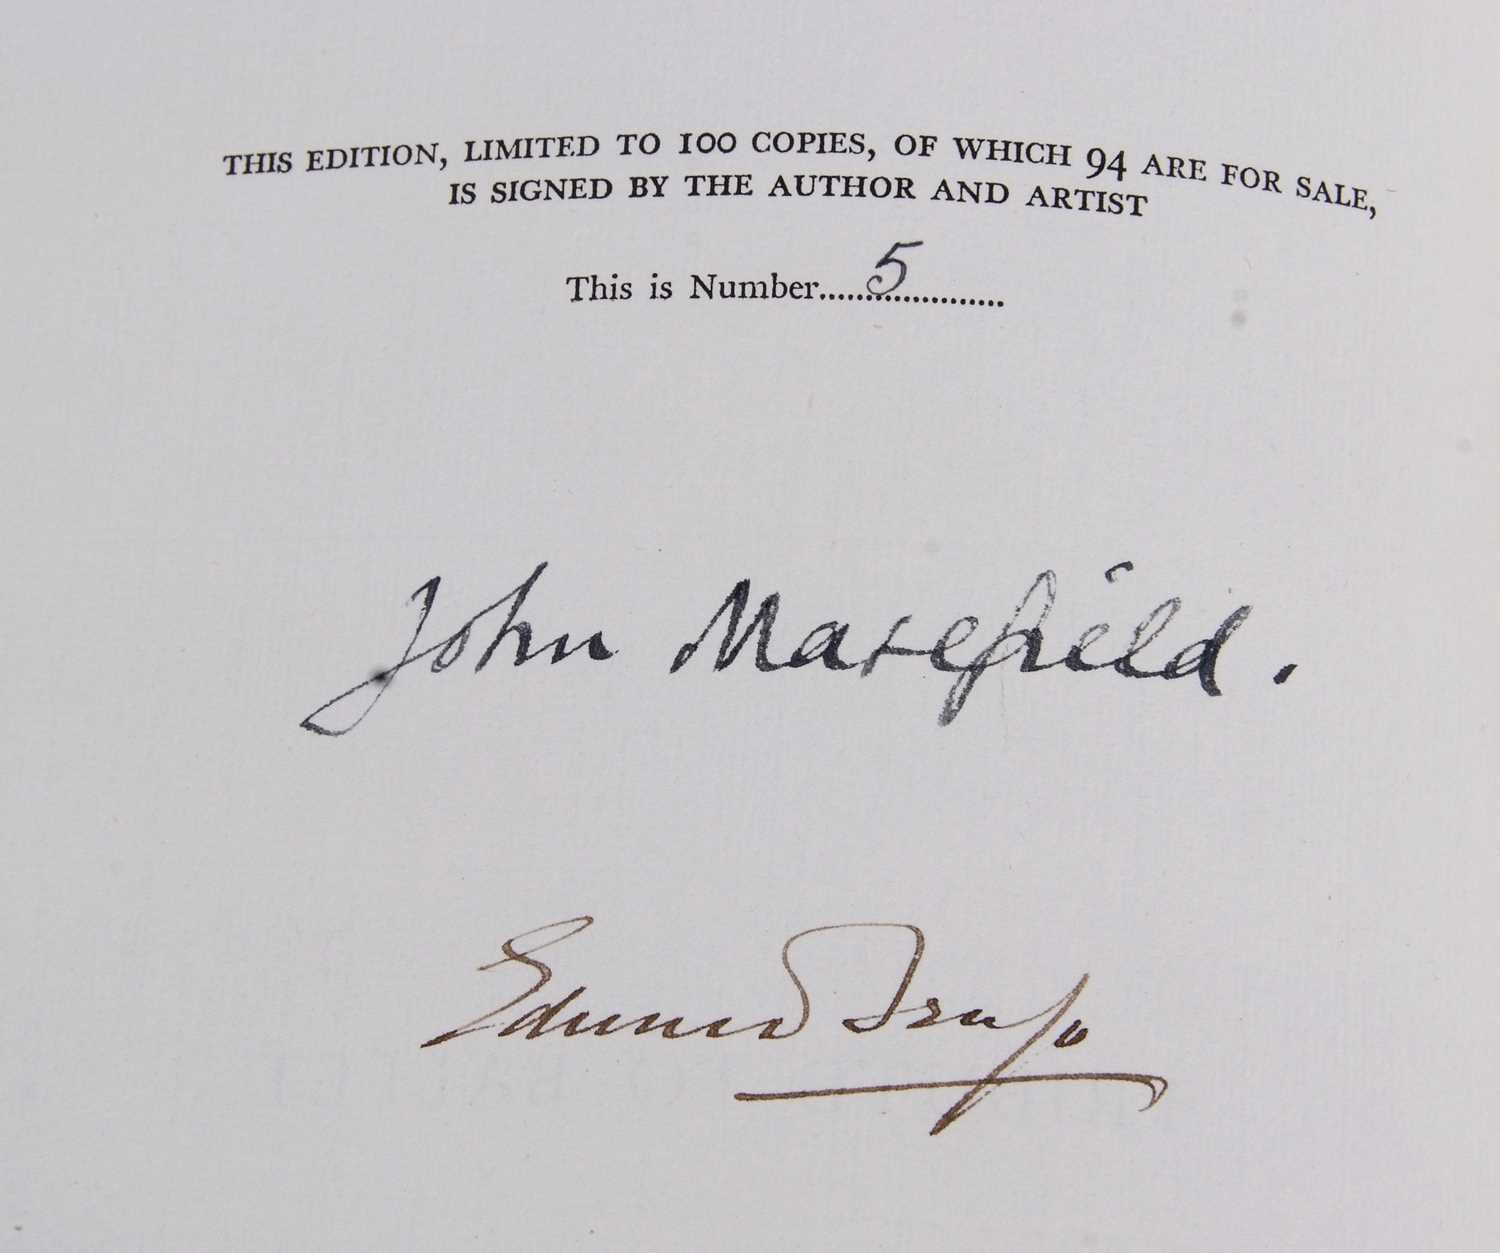 THIS EDITION, LIMITED TO 100 COPIES, OF WHICH 94 ARE FOR SALE,
IS SIGNED BY THE AUTHOR AND ARTIST
This is Number.....5...............
John Masefield.
Edward